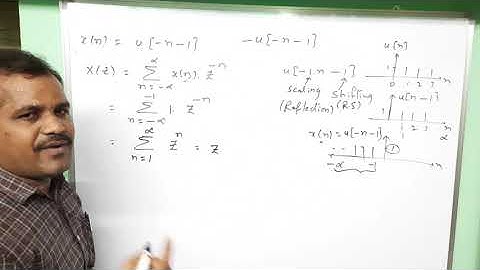 x(n) = u[-n-1]    -u[-n-1]
X(z) = ∑ x(n) z^-n
n=-∝
∝
= ∑ 1. z^-n
n=-∝
-1
= ∑ z^n = z
n=1
∝
u[-1.n-1]
scaling Shifting
(Reflection) (RS)
u[n]
1
0 1 2 3 n
u[n-1]
1
1 2 3 n
∝
x(n) = u[-n-1]
-∝ -1 n
①